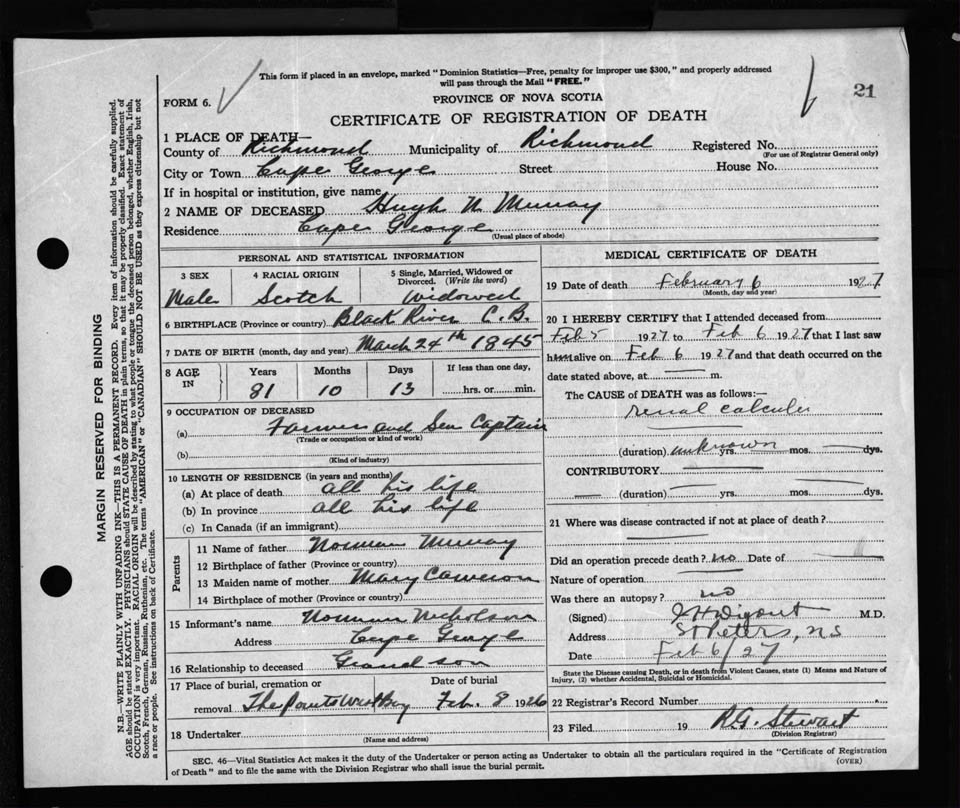 This form if placed in an envelope, marked "Dominion Statistics—Free, penalty for improper use $300," and properly addressed
will pass through the Mail "FREE."
21
FORM 6.
PROVINCE OF NOVA SCOTIA
CERTIFICATE OF REGISTRATION OF DEATH
1 PLACE OF DEATH—
County of Richmond Municipality of Richmond Registered No.
(For use of Registrar General only)
City or Town Cape George Street House No.
If in hospital or institution, give name
2 NAME OF DECEASED Hugh N Murray
Residence Cape George
(Usual place of abode)
PERSONAL AND STATISTICAL INFORMATION
3 SEX 4 RACIAL ORIGIN 5 Single, Married, Widowed or Divorced. (Write the word)
Male Scotch Widowed
6 BIRTHPLACE (Province or country) Black River C.B.
7 DATE OF BIRTH (month, day and year) March 24th 1845
8 AGE IN Years Months Days If less than one day,
81 10 13 hrs. or min.
9 OCCUPATION OF DECEASED
(a) Farmer and Sea Captain
(Trade or occupation or kind of work)
(b)
(Kind of industry)
10 LENGTH OF RESIDENCE (in years and months)
(a) At place of death all his life
(b) In province all his life
(c) In Canada (if an immigrant)
Parents
11 Name of father Norman Murray
12 Birthplace of father (Province or country)
13 Maiden name of mother Mary Cameron
14 Birthplace of mother (Province or country)
15 Informant's name Norman Nicholson
Address Cape George
16 Relationship to deceased Grandson
17 Place of burial, cremation or Date of burial
removal The Points West Bay Feb. 8 1926
18 Undertaker
(Name and address)
MEDICAL CERTIFICATE OF DEATH
19 Date of death February 6 1927
(Month, day and year)
20 I HEREBY CERTIFY that I attended deceased from
Feb 5 1927 to Feb 6 1927 that I last saw
him alive on Feb 6 1927 and that death occurred on the
date stated above, at m.
The CAUSE of DEATH was as follows:—
renal calculi
(duration) unknown yrs. mos. dys.
CONTRIBUTORY
(duration) yrs. mos. dys.
21 Where was disease contracted if not at place of death?
Did an operation precede death? no Date of
Nature of operation
Was there an autopsy? no
(Signed) M.D.
Address St Peters, N.S.
Date Feb 6/27
State the Disease causing Death, or in death from Violent Causes, state (1) Means and Nature of
Injury, (2) whether Accidental, Suicidal or Homicidal.
22 Registrar's Record Number
23 Filed 19 R.G. Stewart
(Division Registrar)
SEC. 46—Vital Statistics Act makes it the duty of the Undertaker or person acting as Undertaker to obtain all the particulars required in the "Certificate of Registration
of Death" and to file the same with the Division Registrar who shall issue the burial permit.
(OVER)
MARGIN RESERVED FOR BINDING
N.B.—WRITE PLAINLY WITH UNFADING INK—THIS IS A PERMANENT RECORD. Every item of information should be carefully supplied.
AGE should be stated EXACTLY. PHYSICIANS should STATE CAUSE OF DEATH in plain terms, so that it may be properly classified. Exact statement of
OCCUPATION is very important. RACIAL ORIGIN will be described by stating to what people or tongue the deceased person belonged, whether English, Irish,
Scotch, French, German, Russian, Ruthenian, etc. The terms "AMERICAN" or "CANADIAN" SHOULD NOT BE USED as they express citizenship but not
a race or people. See instructions on back of Certificate.